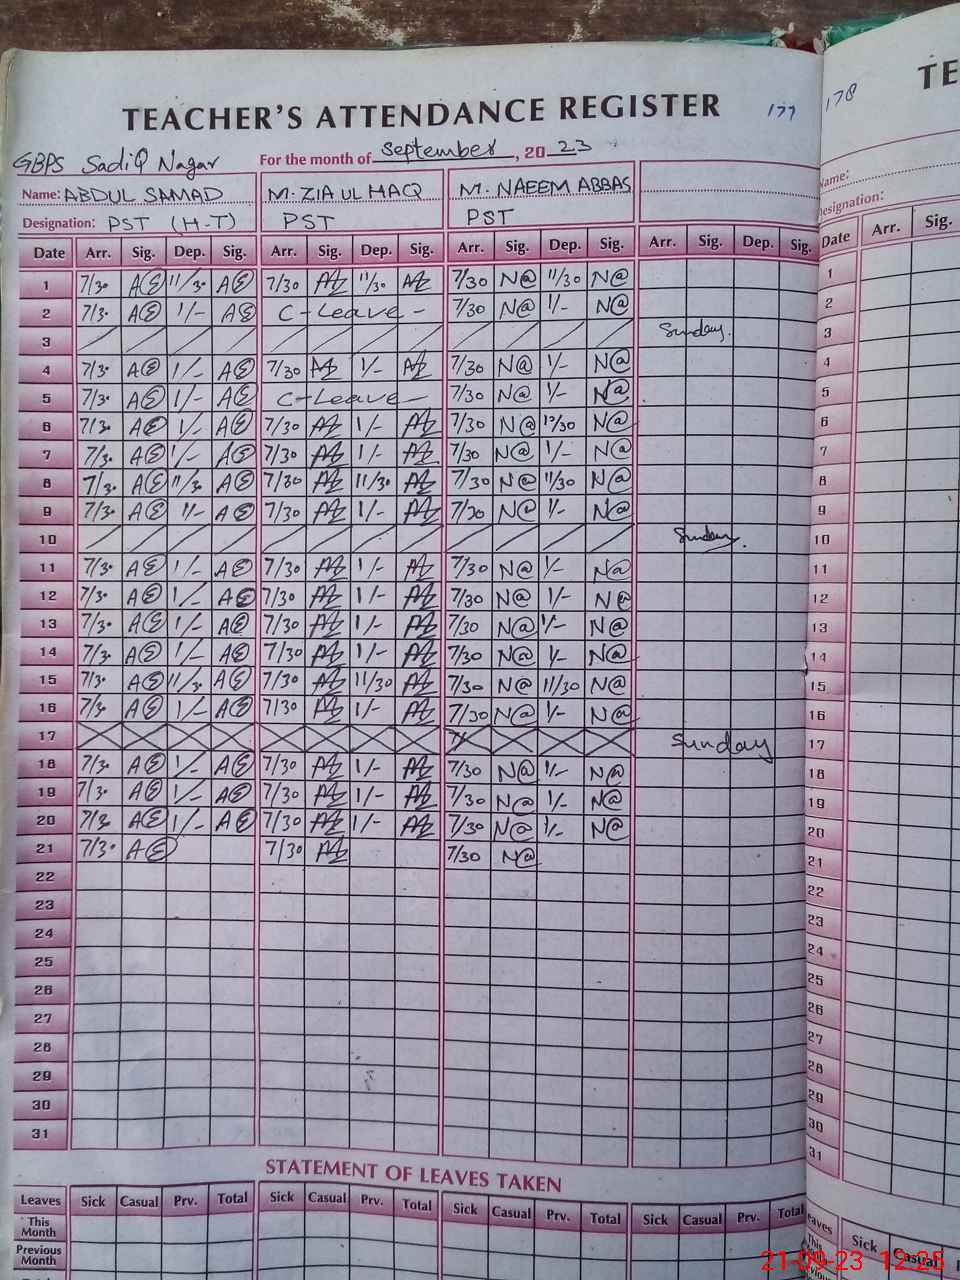 TEACHER'S ATTENDANCE REGISTER 177
GBPS SadiQ Nagar For the month of September, 20 23
Name: ABDUL SAMAD M. ZIA UL HAQ M. NAEEM ABBAS
Designation: PST (H-T) PST PST
Date Arr. Sig. Dep. Sig. Arr. Sig. Dep. Sig. Arr. Sig. Dep. Sig. Arr. Sig. Dep. Sig.
1 7/30 11/30 7/30 11/30 7/30 N@ 11/30 N@
2 7/30 1/- C-Leave- 7/30 N@ 1/- N@
3 Sunday.
4 7/30 1/- 7/30 1/- 7/30 N@ 1/- N@
5 7/30 1/- C-Leave- 7/30 N@ 1/- N@
6 7/30 1/- 7/30 1/- 7/30 N@ N@
7 7/30 1/- 7/30 1/- 7/30 N@ 1/- N@
8 7/30 11/30 7/30 11/30 7/30 N@ 11/30 N@
9 7/30 1/- 7/30 1/- 7/30 N@ 1/- N@
10 Sunday.
11 7/30 1/- 7/30 1/- 7/30 N@ 1/- N@
12 7/30 1/- 7/30 1/- 7/30 N@ 1/- N@
13 7/30 1/- 7/30 1/- 7/30 N@ 1/- N@
14 7/30 1/- 7/30 1/- 7/30 N@ 1/- N@
15 7/30 11/30 7/30 11/30 7/30 N@ 11/30 N@
16 7/30 1/- 7/30 1/- 7/30 N@ 1/- N@
17 Sunday
18 7/30 1/- 7/30 1/- 7/30 N@ 1/- N@
19 7/30 1/- 7/30 1/- 7/30 N@ 1/- N@
20 7/30 1/- 7/30 1/- 7/30 N@ 1/- N@
21 7/30 7/30 7/30 N@
22
23
24
25
26
27
28
29
30
31
STATEMENT OF LEAVES TAKEN
Leaves Sick Casual Prv. Total Sick Casual Prv. Total Sick Casual Prv. Total Sick Casual Prv. Total
This Month
Previous Month
178 TE
Name:
Designation:
Date Arr. Sig.
1
2
3
4
5
6
7
8
9
10
11
12
13
14
15
16
17
18
19
20
21
22
23
24
25
26
27
28
29
30
31
Sick Casual
21-09-23 12:25